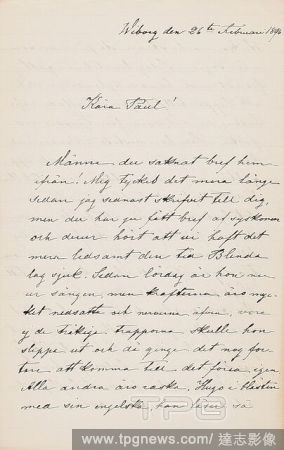 Wiborg den 26te Februari 1896
Kära Paul!
Månne du saknat bref hem
ifrån! Mig tyckes det vara länge
sedan jag sednast skrifvit till dig,
men du har ju fått bref af syskonen
och derur hört att vi haft det
mera ledsamt den tid Blenda
låg sjuk. Sedan lördag är hon nu
ur sängen, men krafterna äro myc-
ket nedsatta och nerverna äfven, vore
de friskiga trapporna skulle hon
slippa ut och då ginge det nog for-
tare att komma till det förra igen
Alla andra äro raska. Hugo i
med sin engelska, han läser så
www.tpgnews.com/達志影像
TPG